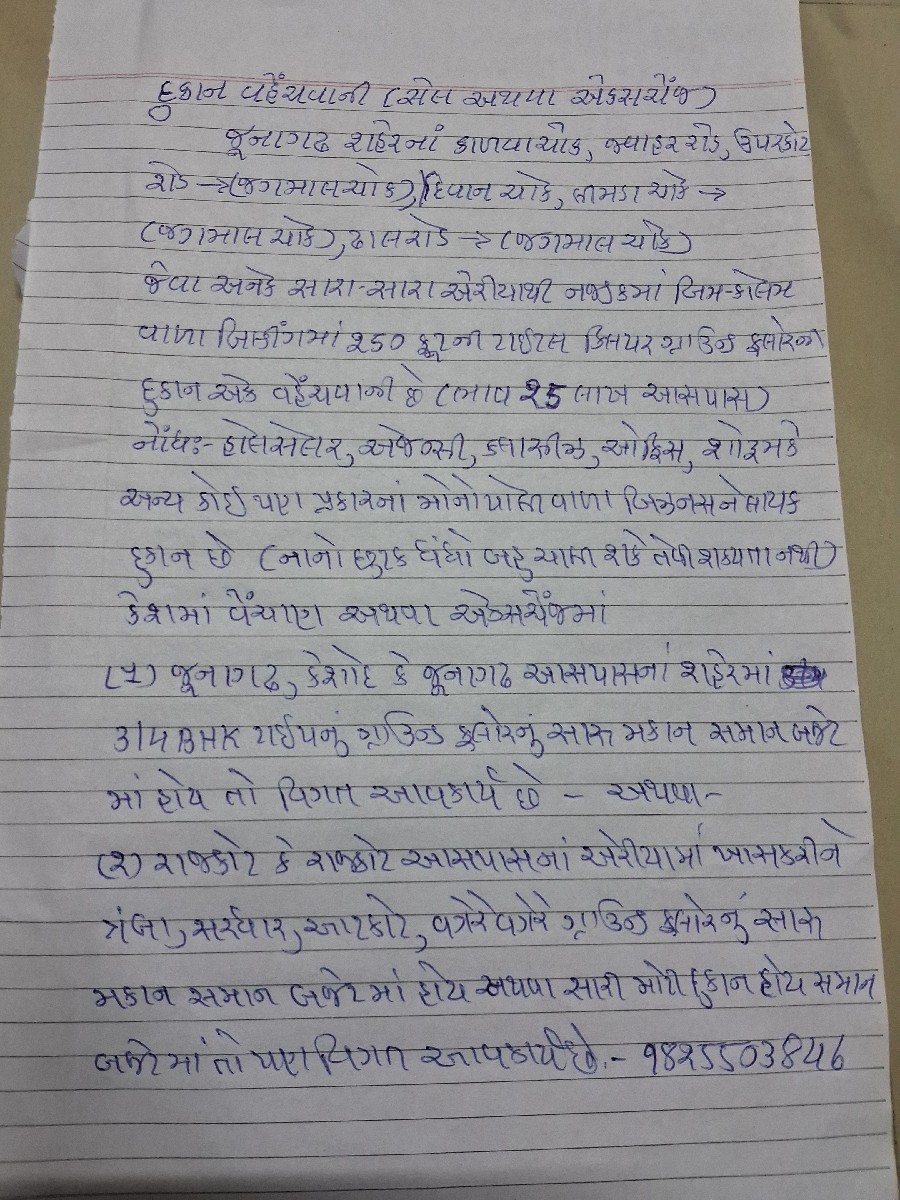 દુકાન વહેંચવાની (સેલ અથવા એકસચેંજ)
જૂનાગઢ શહેરનાં કાળવાચોક, જવાહર રોડ, ઉપરકોટ
રોડ → (જગમાલચોક), દિવાન ચોક, લીમડા ચોક →
(જગમાલ ચોક), ઢાલરોડ → (જગમાલ ચોક)
જેવા અનેક સારા-સારા એરીયાથી નજીકમાં જિમ-કોલેજ
વાળા બિલ્ડીંગમાં 250 ફૂટની ટાઈટલ ક્લિયર ગ્રાઉન્ડ ફ્લોરની
દુકાન એક વહેંચવાની છે (ભાવ 25 લાખ આસપાસ)
નોંધઃ- હોલસેલર, એજન્સી, કલાસીઝ, ઓફિસ, શોરૂમ કે
અન્ય કોઈ પણ પ્રકારનાં મોનોપોલી વાળા બિઝનસ ને લાયક
દુકાન છે (નાનો છુટક ધંધો બહુ ચાલી શકે તેવી શકયતા નથી)
કેશમાં વેંચાણ અથવા એક્સચેંજમાં
(૧) જૂનાગઢ, કેશોદ કે જૂનાગઢ આસપાસનાં શહેરમાં
૩/૫ BHK ટાઈપનું ગ્રાઉન્ડ ફ્લોરનું સારુ મકાન સમાન બજેટ
માં હોય તો વિગત આવકાર્ય છે - અથવા-
(૨) રાજકોટ કે રાજકોટ આસપાસનાં એરીયામાં ખાસકરીને
ત્રંબા, સરધાર, આટકોટ, વગેરે વગેરે ગ્રાઉન્ડ ફ્લોરનું સારુ
મકાન સમાન બજેટમાં હોય અથવા સારી મોટી દુકાન હોય સમાન
બજેટમાં તો પણ વિગત આવકાર્ય છે.- 9825503846